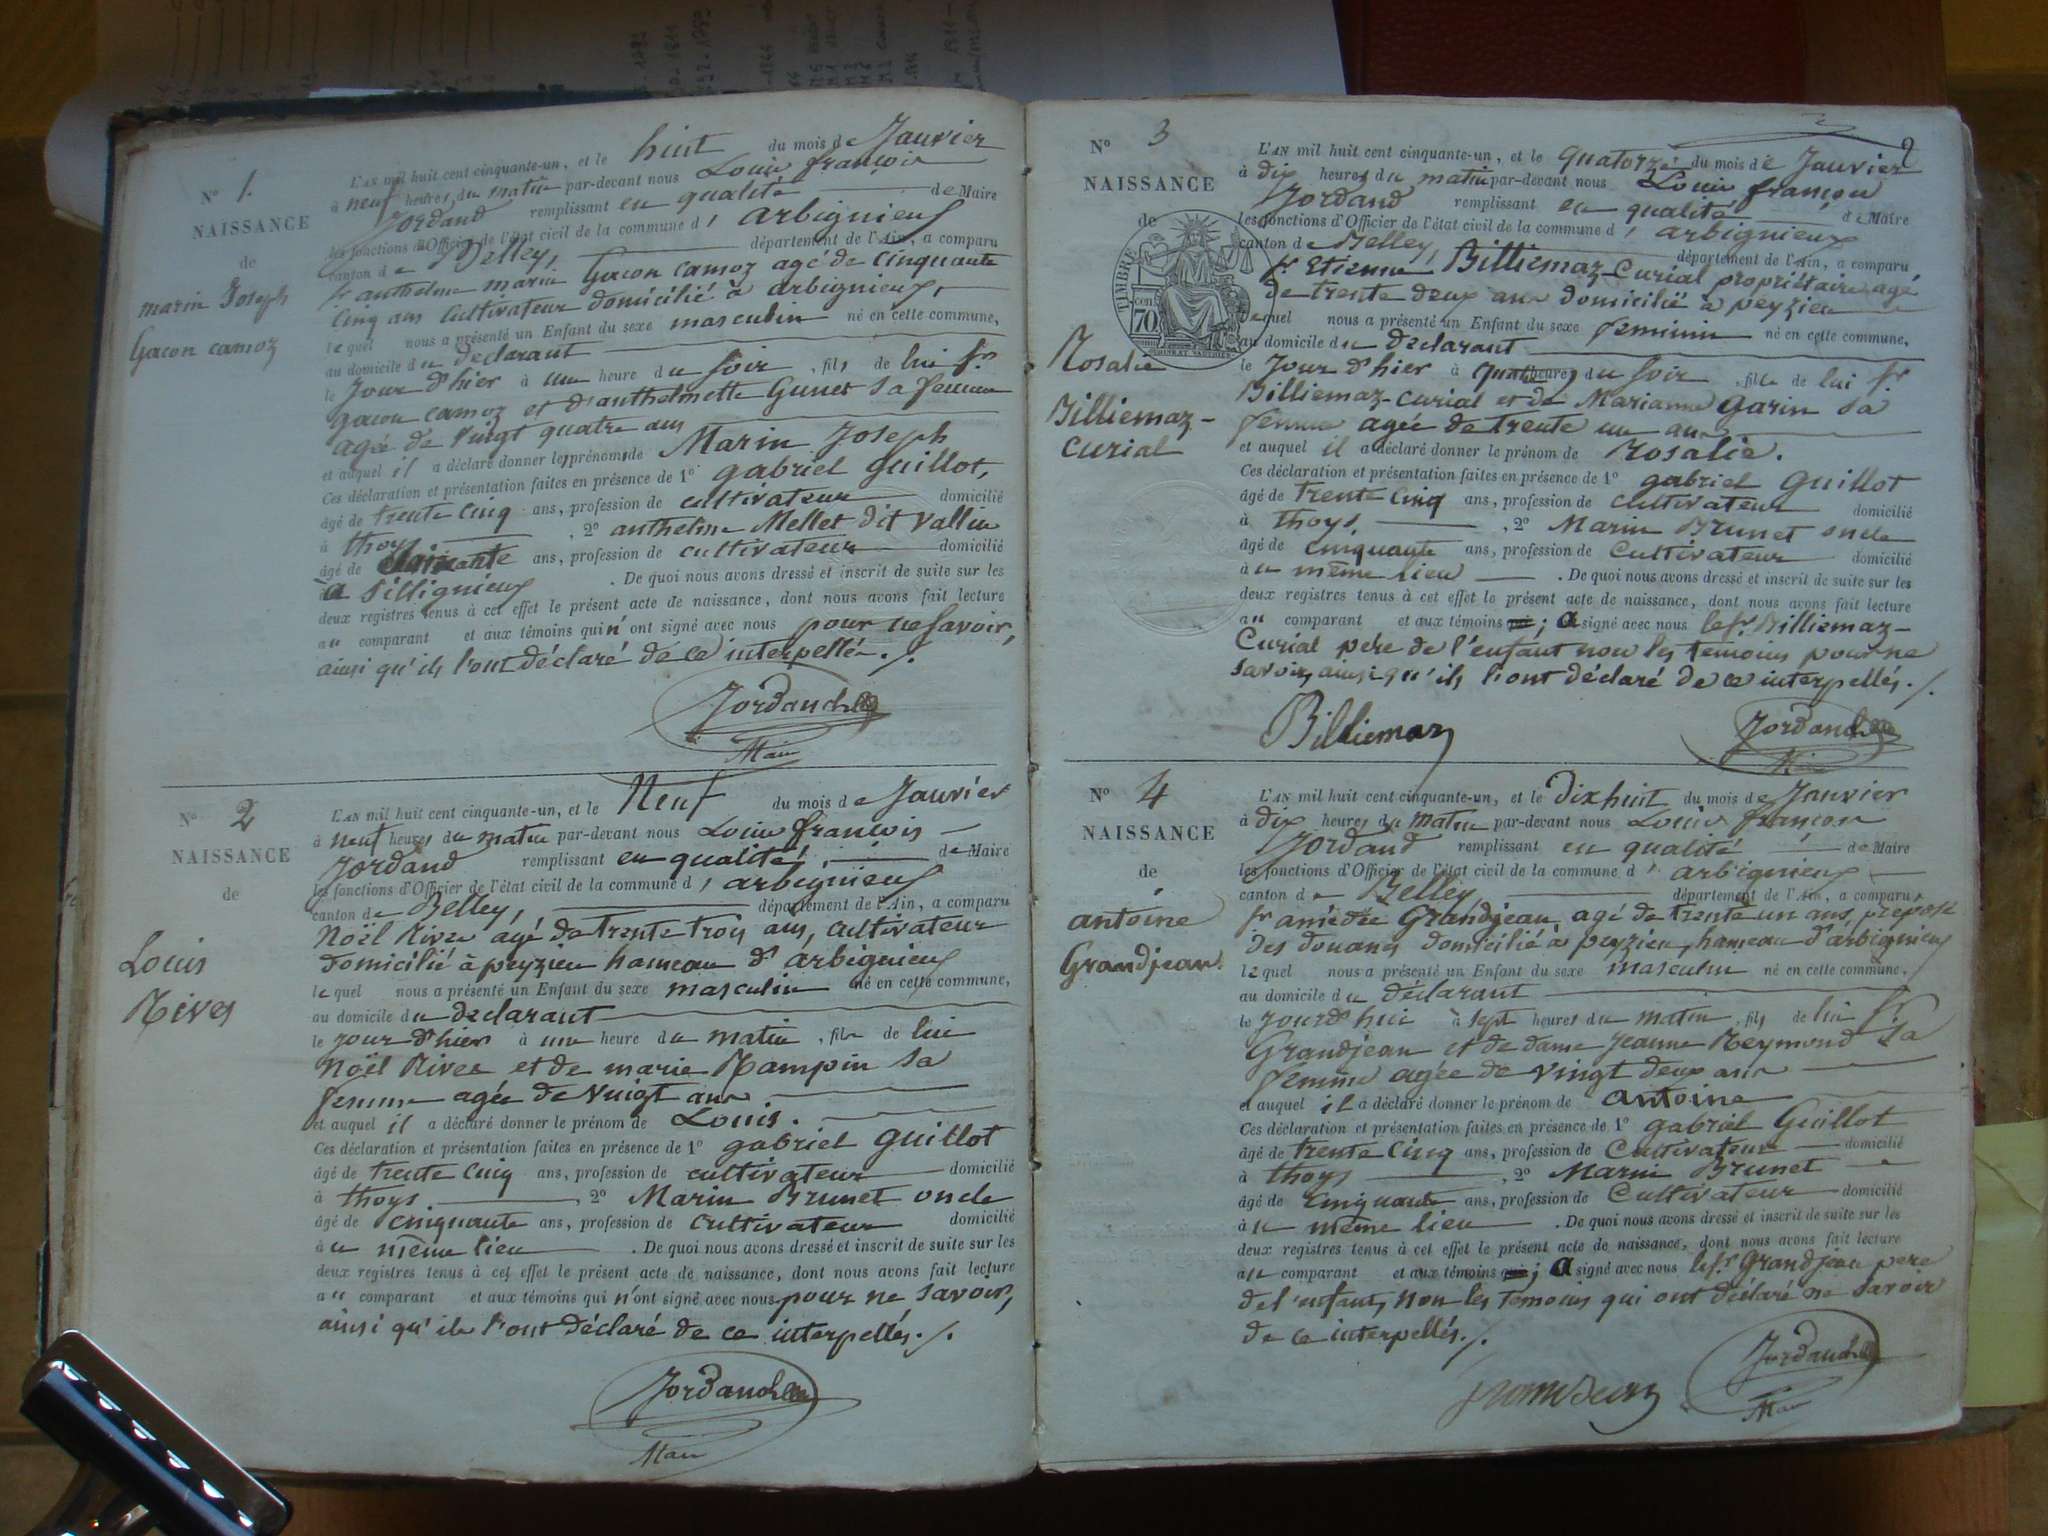 N° 1.
NAISSANCE
de
marin Joseph
Gacon camoz
L'AN mil huit cent cinquante-un, et le huit du mois de Janvier
à neuf heures du matin par-devant nous Louis françois
Jordand remplissant en qualité de Maire
les fonctions d'Officier de l'état civil de la commune d' arbignieux
canton de Belley, département de l'Ain, a comparu
sr anthelme marin Gacon camoz agé de cinquante
cinq ans cultivateur domicilié à arbignieux,
lequel nous a présenté un Enfant du sexe masculin né en cette commune,
au domicile du declarant
le Jour d'hier à une heure du soir, fils de lui sr
gacon camoz et d'anthelmette Gunet sa femme
agée de vingt quatre ans
et auquel il a déclaré donner les prénoms de Marin Joseph
Ces déclaration et présentation faites en présence de 1° gabriel guillot,
âgé de trente cinq ans, profession de cultivateur domicilié
à thoys, 2° anthelme Mellet dit vallin
âgé de ans, profession de cultivateur domicilié
à Sillignieux. De quoi nous avons dressé et inscrit de suite sur les
deux registres tenus à cet effet le présent acte de naissance, dont nous avons fait lecture
au comparant et aux témoins qui n'ont signé avec nous pour ne savoir,
ainsi qu'ils l'ont déclaré de ce interpellés./.
Jordand
Maire
N° 2
NAISSANCE
de
Louis
Rives
L'AN mil huit cent cinquante-un, et le Neuf du mois de Janvier
à neuf heures du matin par-devant nous Louis françois
Jordand remplissant en qualité de Maire
les fonctions d'Officier de l'état civil de la commune d' arbignieux
canton de Belley, département de l'Ain, a comparu
Noël Rives agé de trente trois ans, cultivateur
domicilié à peyzieu hameau d'arbignieux
lequel nous a présenté un Enfant du sexe masculin né en cette commune,
au domicile du declarant
le jour d'hier à une heure du matin, fils de lui
Noël Rives et de marie Rampin sa
femme agée de vingt ans
et auquel il a déclaré donner le prénom de Louis.
Ces déclaration et présentation faites en présence de 1° gabriel guillot
âgé de trente cinq ans, profession de cultivateur domicilié
à thoys, 2° Marin Brunet oncle
âgé de cinquante ans, profession de cultivateur domicilié
au même lieu. De quoi nous avons dressé et inscrit de suite sur les
deux registres tenus à cet effet le présent acte de naissance, dont nous avons fait lecture
au comparant et aux témoins qui n'ont signé avec nous pour ne savoir,
ainsi qu'ils l'ont déclaré de ce interpellés./.
Jordand
Maire
2
N° 3
NAISSANCE
de
TIMBRE
70
Rosalie
Billiemaz-
curial
L'AN mil huit cent cinquante-un, et le quatorze du mois de Janvier
à dix heures du matin par-devant nous Louis françois
Jordand remplissant en qualité de Maire
les fonctions d'Officier de l'état civil de la commune d' arbignieux
canton de Belley, département de l'Ain, a comparu
sr Etienne Billiemaz-Curial propriétaire agé
de trente deux ans domicilié à peyzieu
lequel nous a présenté un Enfant du sexe feminin né en cette commune,
au domicile du declarant
le Jour d'hier à quatre heures du soir, fille de lui sr
Billiemaz-curial et de Marianne garin sa
femme agée de trente un ans
et auquel il a déclaré donner le prénom de Rosalie.
Ces déclaration et présentation faites en présence de 1° gabriel guillot
âgé de trente cinq ans, profession de cultivateur domicilié
à thoys, 2° Marin Brunet oncle
âgé de cinquante ans, profession de cultivateur domicilié
au même lieu. De quoi nous avons dressé et inscrit de suite sur les
deux registres tenus à cet effet le présent acte de naissance, dont nous avons fait lecture
au comparant et aux témoins ; a signé avec nous le sr Billiemaz-
Curial père de l'enfant non les temoins pour ne
savoir, ainsi qu'ils l'ont déclaré de ce interpellés./.
Billiemaz
Jordand
Maire
N° 4
NAISSANCE
de
antoine
Grandjean.
L'AN mil huit cent cinquante-un, et le Dix huit du mois de Janvier
à dix heures du matin par-devant nous Louis françois
Jordand remplissant en qualité de Maire
les fonctions d'Officier de l'état civil de la commune d' arbignieux
canton de Belley département de l'Ain, a comparu
sr amédée Grandjean agé de trente un ans, préposé
des douanes domicilié à peyzieu, hameau d'arbignieux
lequel nous a présenté un Enfant du sexe masculin né en cette commune,
au domicile du déclarant
le jourd'hui à sept heures du matin, fils de lui sr
Grandjean et de dame Jeanne Reymond sa
femme agée de vingt deux ans
et auquel il a déclaré donner le prénom de antoine
Ces déclaration et présentation faites en présence de 1° gabriel Guillot
âgé de trente cinq ans, profession de Cultivateur domicilié
à thoys, 2° Marin Brunet
âgé de cinquante ans, profession de Cultivateur domicilié
au même lieu. De quoi nous avons dressé et inscrit de suite sur les
deux registres tenus à cet effet le présent acte de naissance, dont nous avons fait lecture
au comparant et aux témoins ; a signé avec nous le sr Grandjean père
de l'enfant, non les temoins qui ont déclaré ne savoir
de ce interpellés./.
Jordand
Maire